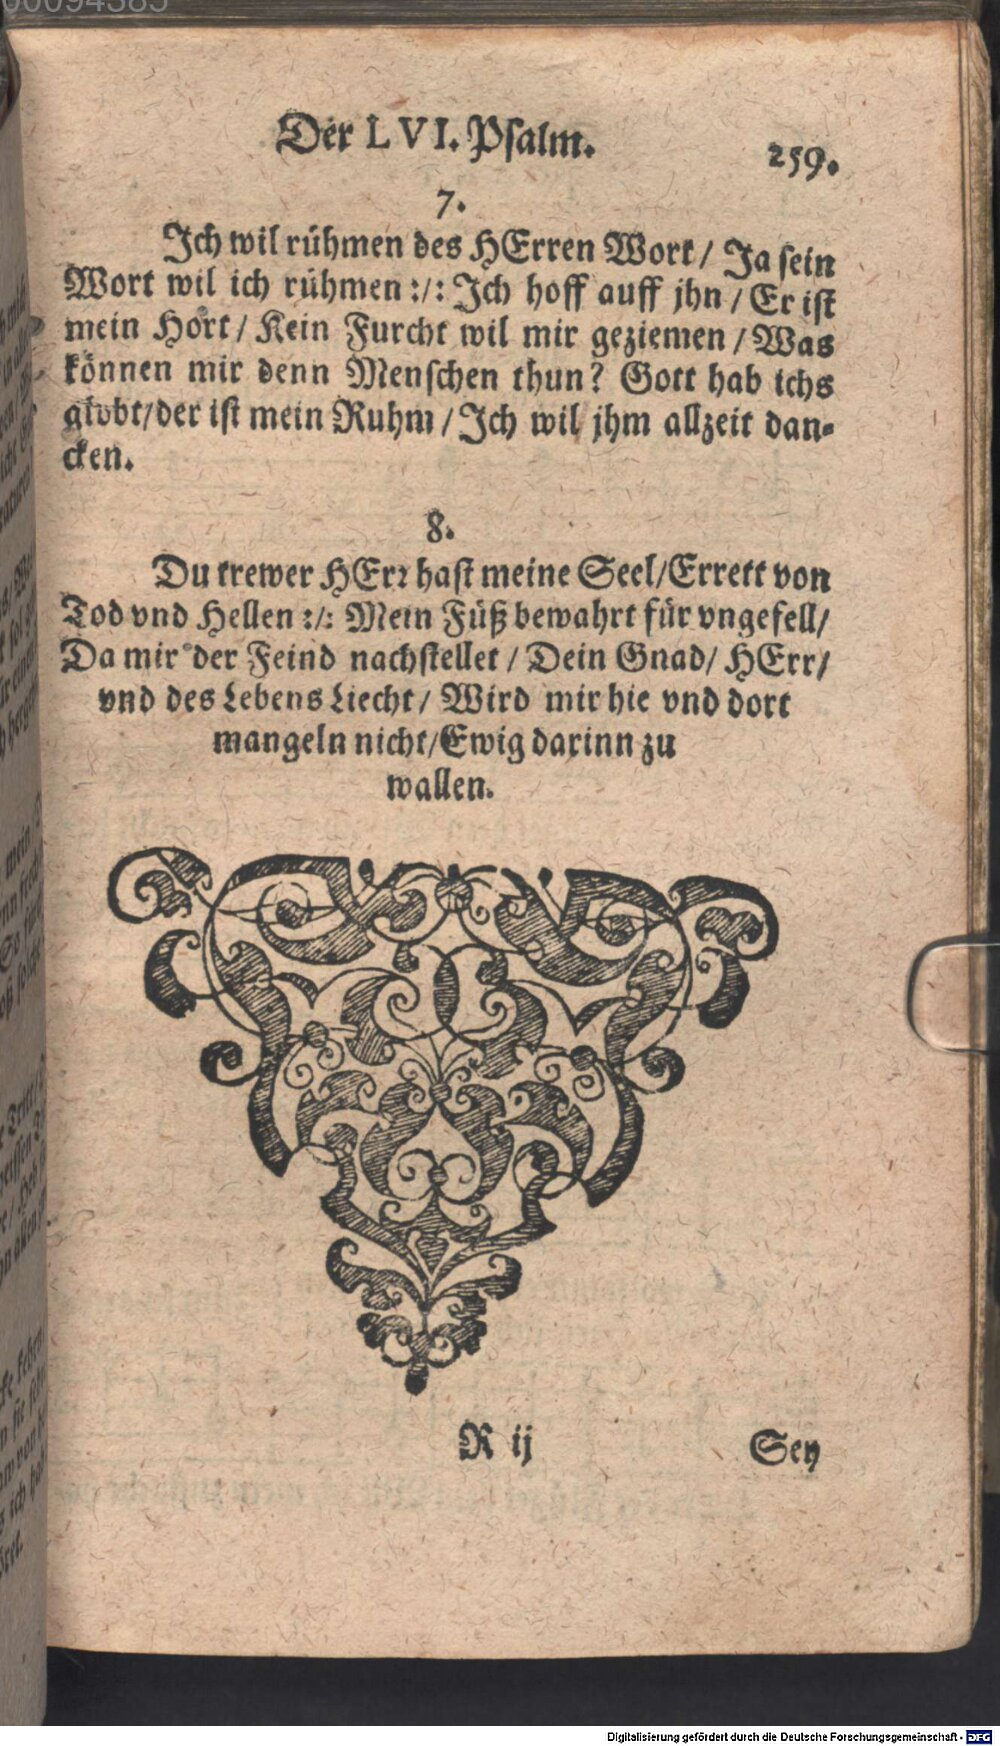 00094385
Der LVI. Psalm.
259.
7.
Ich wil rühmen des HErren Wort/ Ja sein
Wort wil ich rühmen :/: Ich hoff auff jhn / Er ist
mein Hort/ Kein Furcht wil mir geziemen / Was
können mir denn Menschen thun? Gott hab ichs
globt/der ist mein Ruhm / Ich wil jhm allzeit dan-
cken.
8.
Du trewer HErr hast meine Seel/Errett von
Tod vnd Hellen :/: Mein Füß bewahrt für vngefell/
Da mir der Feind nachstellet / Dein Gnad/ HErr/
vnd des Lebens Liecht/ Wird mir hie vnd dort
mangeln nicht/Ewig darinn zu
wallen.
R ij
Sey
Digitalisierung gefördert durch die Deutsche Forschungsgemeinschaft - DFG